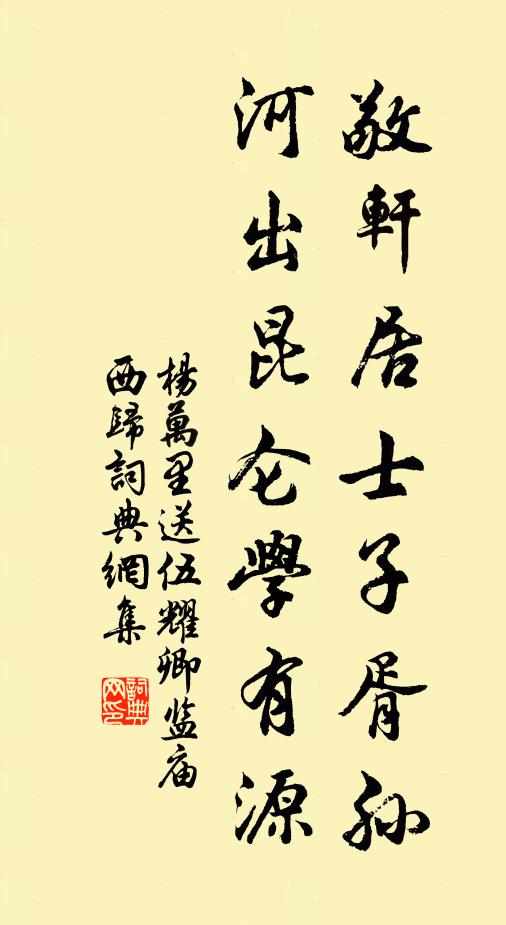 敬軒居士子胥孙
河出昆仑學有源
楊萬里送伍耀卿监庙
西歸詞典網集
詞典网印